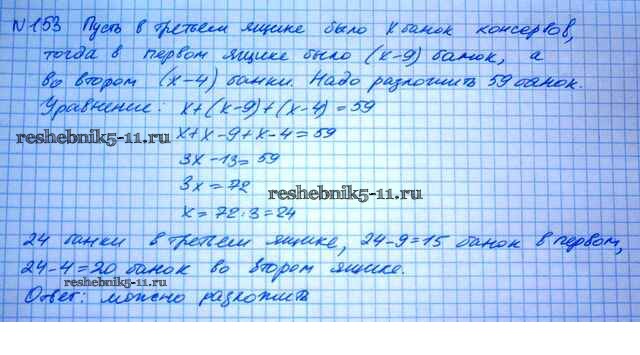 N153 Пусть в третьем ящике было x банок консервов,
тогда в первом ящике было (x-9) банок, а
во втором (x-4) банки. Надо разложить 59 банок.
Уравнение: x+(x-9)+(x-4)=59
reshebnik5-11.ru
x+x-9+x-4=59
3x-13=59
3x=72
reshebnik5-11.ru
x=72:3=24
24 банки в третьем ящике, 24-9=15 банок в первом,
24-4=20 банок во втором ящике.
reshebnik5-11.ru
Ответ: можно разложить